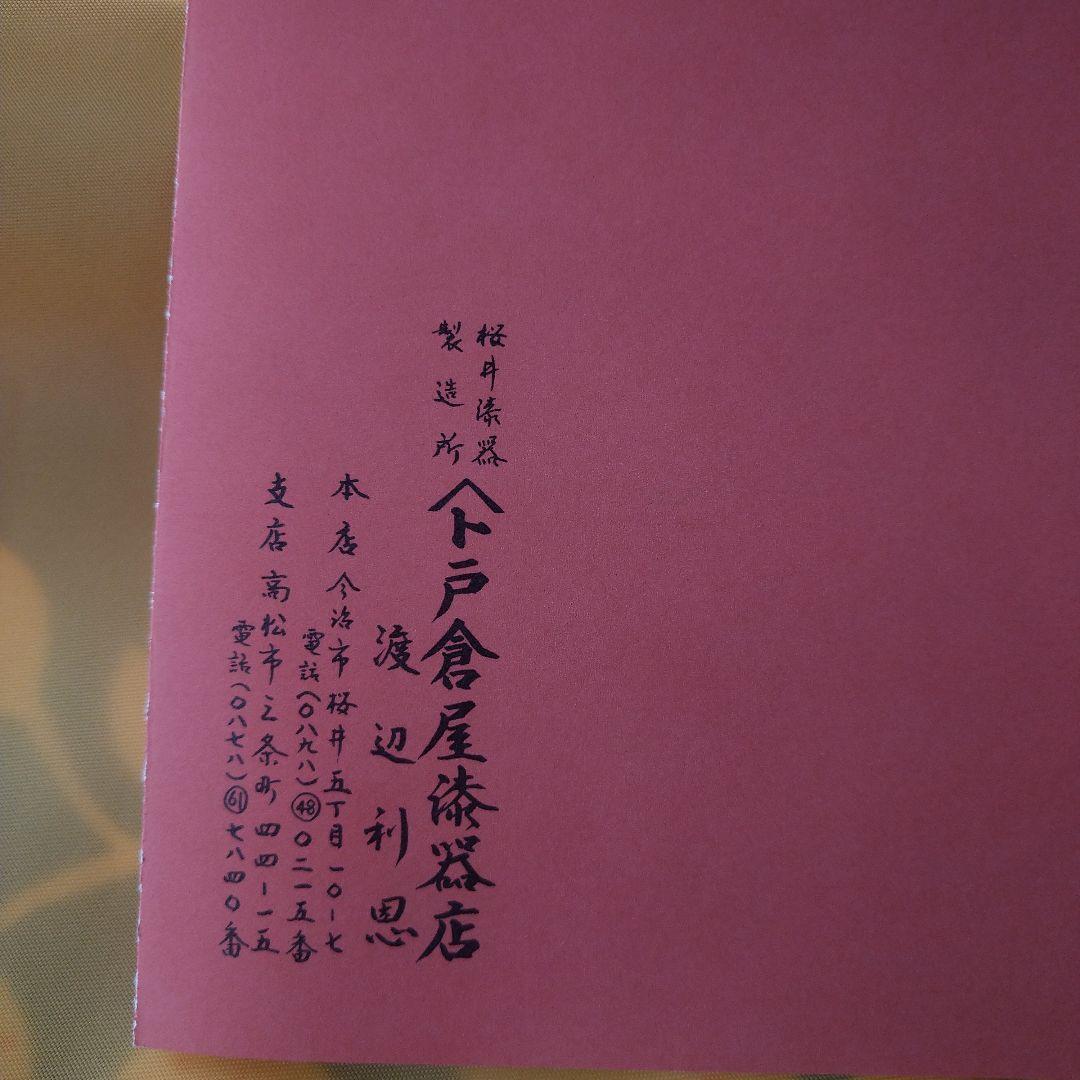 桜井漆器
製造所
卜戸倉屋漆器店
渡辺利恩
本店 今治市桜井五丁目一〇ー七
電話(〇八九八)48〇二一五番
支店 高松市三条町四四ー一五
電話(〇八七八)61七八四〇番